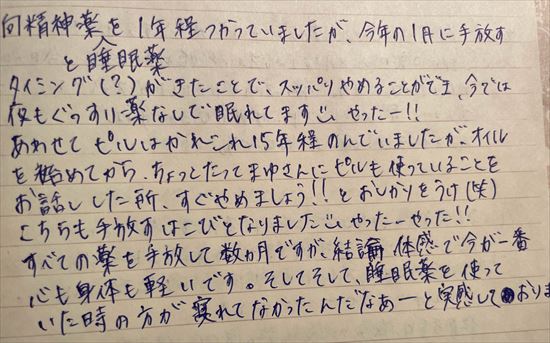 向精神薬を1年程つかっていましたが、今年の1月に手放す
と睡眠薬
タイミング(?)がきたことで、スッパリやめることができ、今では
夜もぐっすり薬なしで眠れてます☺ やったー!!
あわせてピルはかれこれ15年程のんでいましたが、オイル
を始めてから、ちょっとたってまゆさんにピルも使っていることを
お話しした所、すぐやめましょう!!とおしかりをうけ(笑)
こちらも手放すはこびとなりました☺ やったーやった!!
すべての薬を手放して数ヵ月ですが、結論 体感で今が一番
心も身体も軽いです。そしてそして、睡眠薬を使って
いた時の方が寝れてなかったんだなあーと実感しております